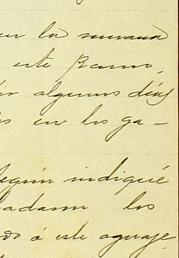 en la semana
este Ramo,
algunos días
en los ga-
según indiqué
ladann los
do á este aguaje